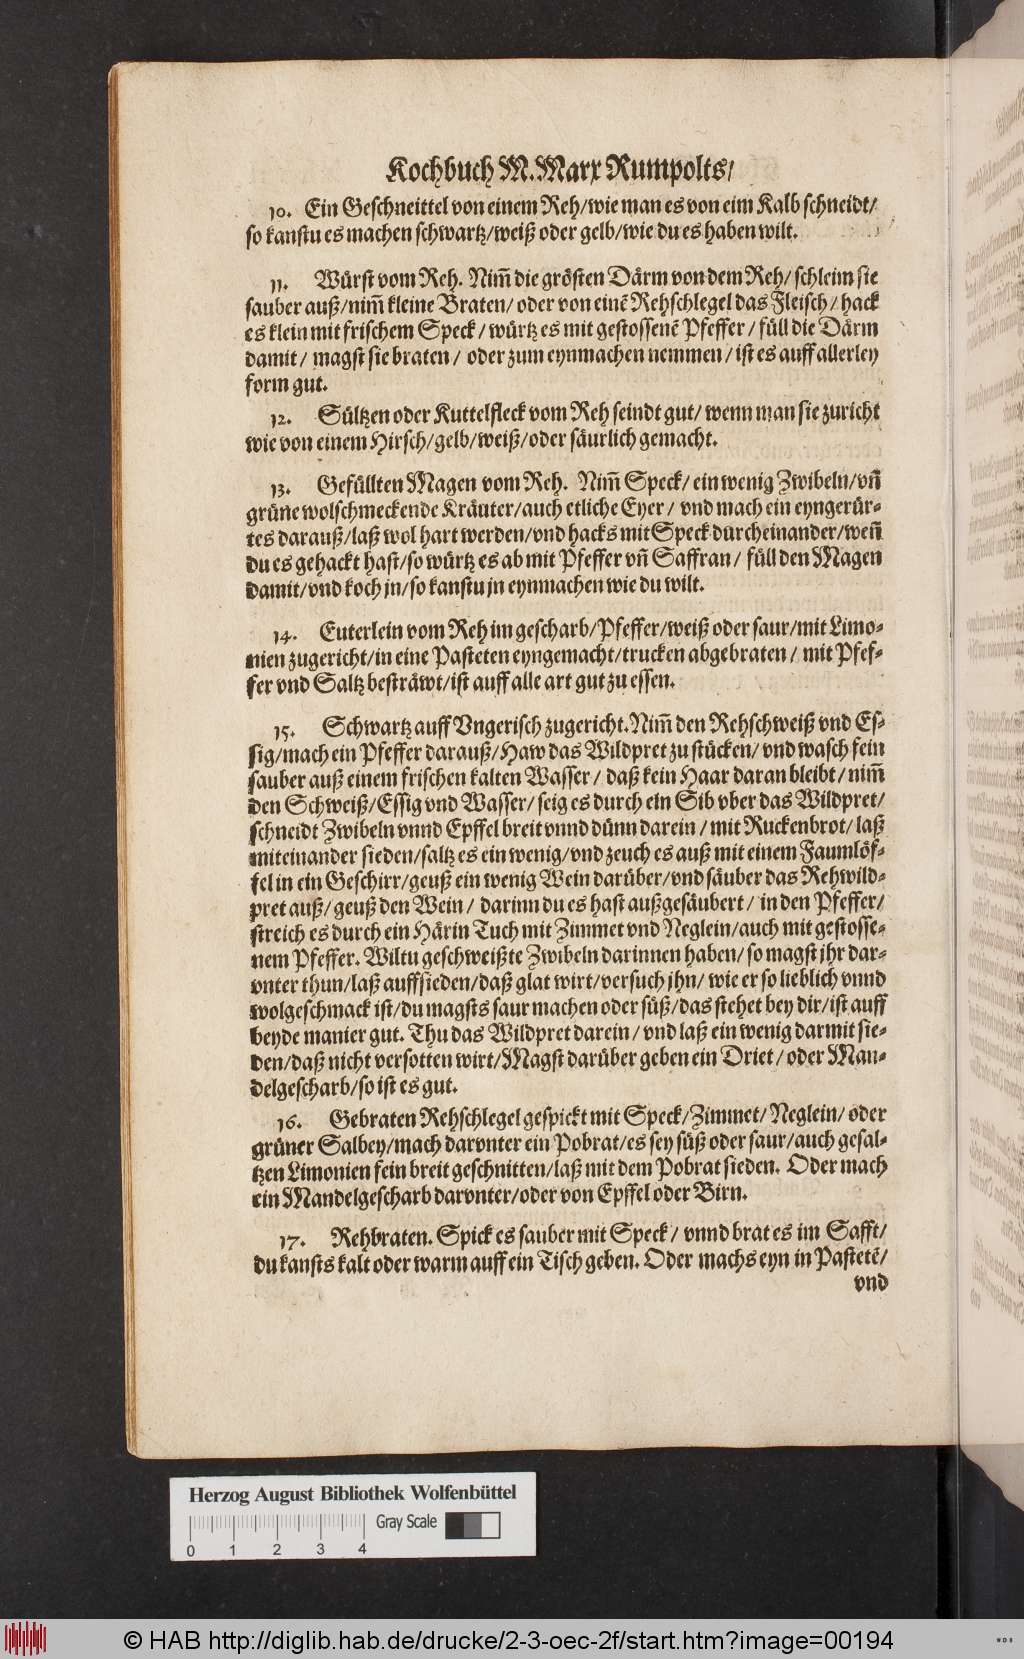 Kochbuch M. Marx Rumpolts/
10. Ein Geschneittel von einem Reh/wie man es von eim Kalb schneidt/
so kanstu es machen schwartz/weiß oder gelb/wie du es haben wilt.
11. Würst vom Reh. Nim̃ die grösten Därm von dem Reh/ schleim sie
sauber auß/nim̃ kleine Braten/ oder von einẽ Rehschlegel das Fleisch/ hack
es klein mit frischem Speck/ würtz es mit gestossenẽ Pfeffer/ füll die Därm
damit/ magst sie braten/ oder zum eynmachen nemmen/ ist es auff allerley
form gut.
12. Sültzen oder Kuttelfleck vom Reh seindt gut/ wenn man sie zuricht
wie von einem Hirsch/gelb/weiß/oder säurlich gemacht.
13. Gefüllten Magen vom Reh. Nim̃ Speck/ ein wenig Zwibeln/vñ
grüne wolschmeckende Kräuter/auch etliche Eyer/ vnd mach ein eyngerür-
tes darauß/laß wol hart werden/vnd hacks mit Speck durcheinander/weñ
du es gehackt hast/so würtz es ab mit Pfeffer vñ Saffran/ füll den Magen
damit/vnd koch jn/so kanstu jn eynmachen wie du wilt.
14. Euterlein vom Reh im gescharb/Pfeffer/weiß oder saur/mit Limo-
nien zugericht/in eine Pasteten eyngemacht/trucken abgebraten/ mit Pfef-
fer vnd Saltz besträwt/ist auff alle art gut zu essen.
15. Schwartz auff Vngerisch zugericht. Nim̃ den Rehschweiß vnd Es-
sig/mach ein Pfeffer darauß/Haw das Wildpret zu stücken/ vnd wasch fein
sauber auß einem frischen kalten Wasser/ daß kein Haar daran bleibt/ nim̃
den Schweiß/Essig vnd Wasser/ seig es durch ein Sib vber das Wildpret/
schneidt Zwibeln vnnd Epffel breit vnnd dünn darein/ mit Ruckenbrot/ laß
miteinander sieden/saltz es ein wenig/vnd zeuch es auß mit einem Faumlöf-
fel in ein Geschirr/geuß ein wenig Wein darüber/vnd säuber das Rehwild-
pret auß/ geuß den Wein/ darinn du es hast außgesäubert/ in den Pfeffer/
streich es durch ein Härin Tuch mit Zimmet vnd Neglein/auch mit gestosse-
nem Pfeffer. Wiltu geschweißte Zwibeln darinnen haben/ so magst jhr dar-
vnter thun/laß auffsieden/daß glat wirt/versuch jhn/ wie er so lieblich vnnd
wolgeschmack ist/du magsts saur machen oder süß/das stehet bey dir/ist auff
beyde manier gut. Thu das Wildpret darein/ vnd laß ein wenig darmit sie-
den/daß nicht versotten wirt/Magst darüber geben ein Driet/ oder Man-
delgescharb/so ist es gut.
16. Gebraten Rehschlegel gespickt mit Speck/Zimmet/ Neglein/ oder
grüner Salbey/mach darvnter ein Pobrat/es sey süß oder saur/auch gesal-
tzen Limonien fein breit geschnitten/laß mit dem Pobrat sieden. Oder mach
ein Mandelgescharb darvnter/oder von Epffel oder Birn.
17. Rehbraten. Spick es sauber mit Speck/ vnnd brat es im Safft/
du kansts kalt oder warm auff ein Tisch geben. Oder machs eyn in Pastetẽ/
vnd
Herzog August Bibliothek Wolfenbüttel
Gray Scale
0 1 2 3 4
© HAB http://diglib.hab.de/drucke/2-3-oec-2f/start.htm?image=00194